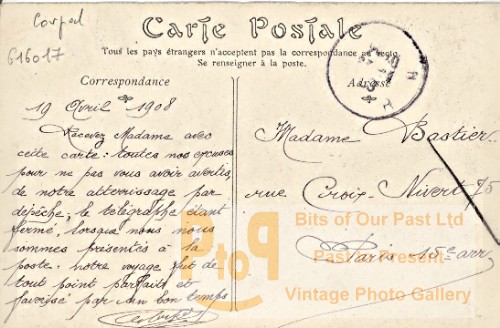 Corpel
G16017
Carte Postale
Tous les pays étrangers n'acceptent pas la correspondance au recto
Se renseigner à la poste.
Correspondance
Adresse
19 Avril 1908
Recevez Madame avec
cette carte: toutes nos excuses
pour ne pas vous avoir avertis,
de notre atterrissage par
depêche; le télégraphe étant
fermé, lorsque nous nous
sommes présentés à la
poste: notre voyage fut de
tout point parfait et
favorisé par un bon temps
Madame Bastier
rue Croix-Nivert 75
Paris 15e arr
PoP
Bits of Our Past Ltd
Past & Present
Vintage Photo Gallery